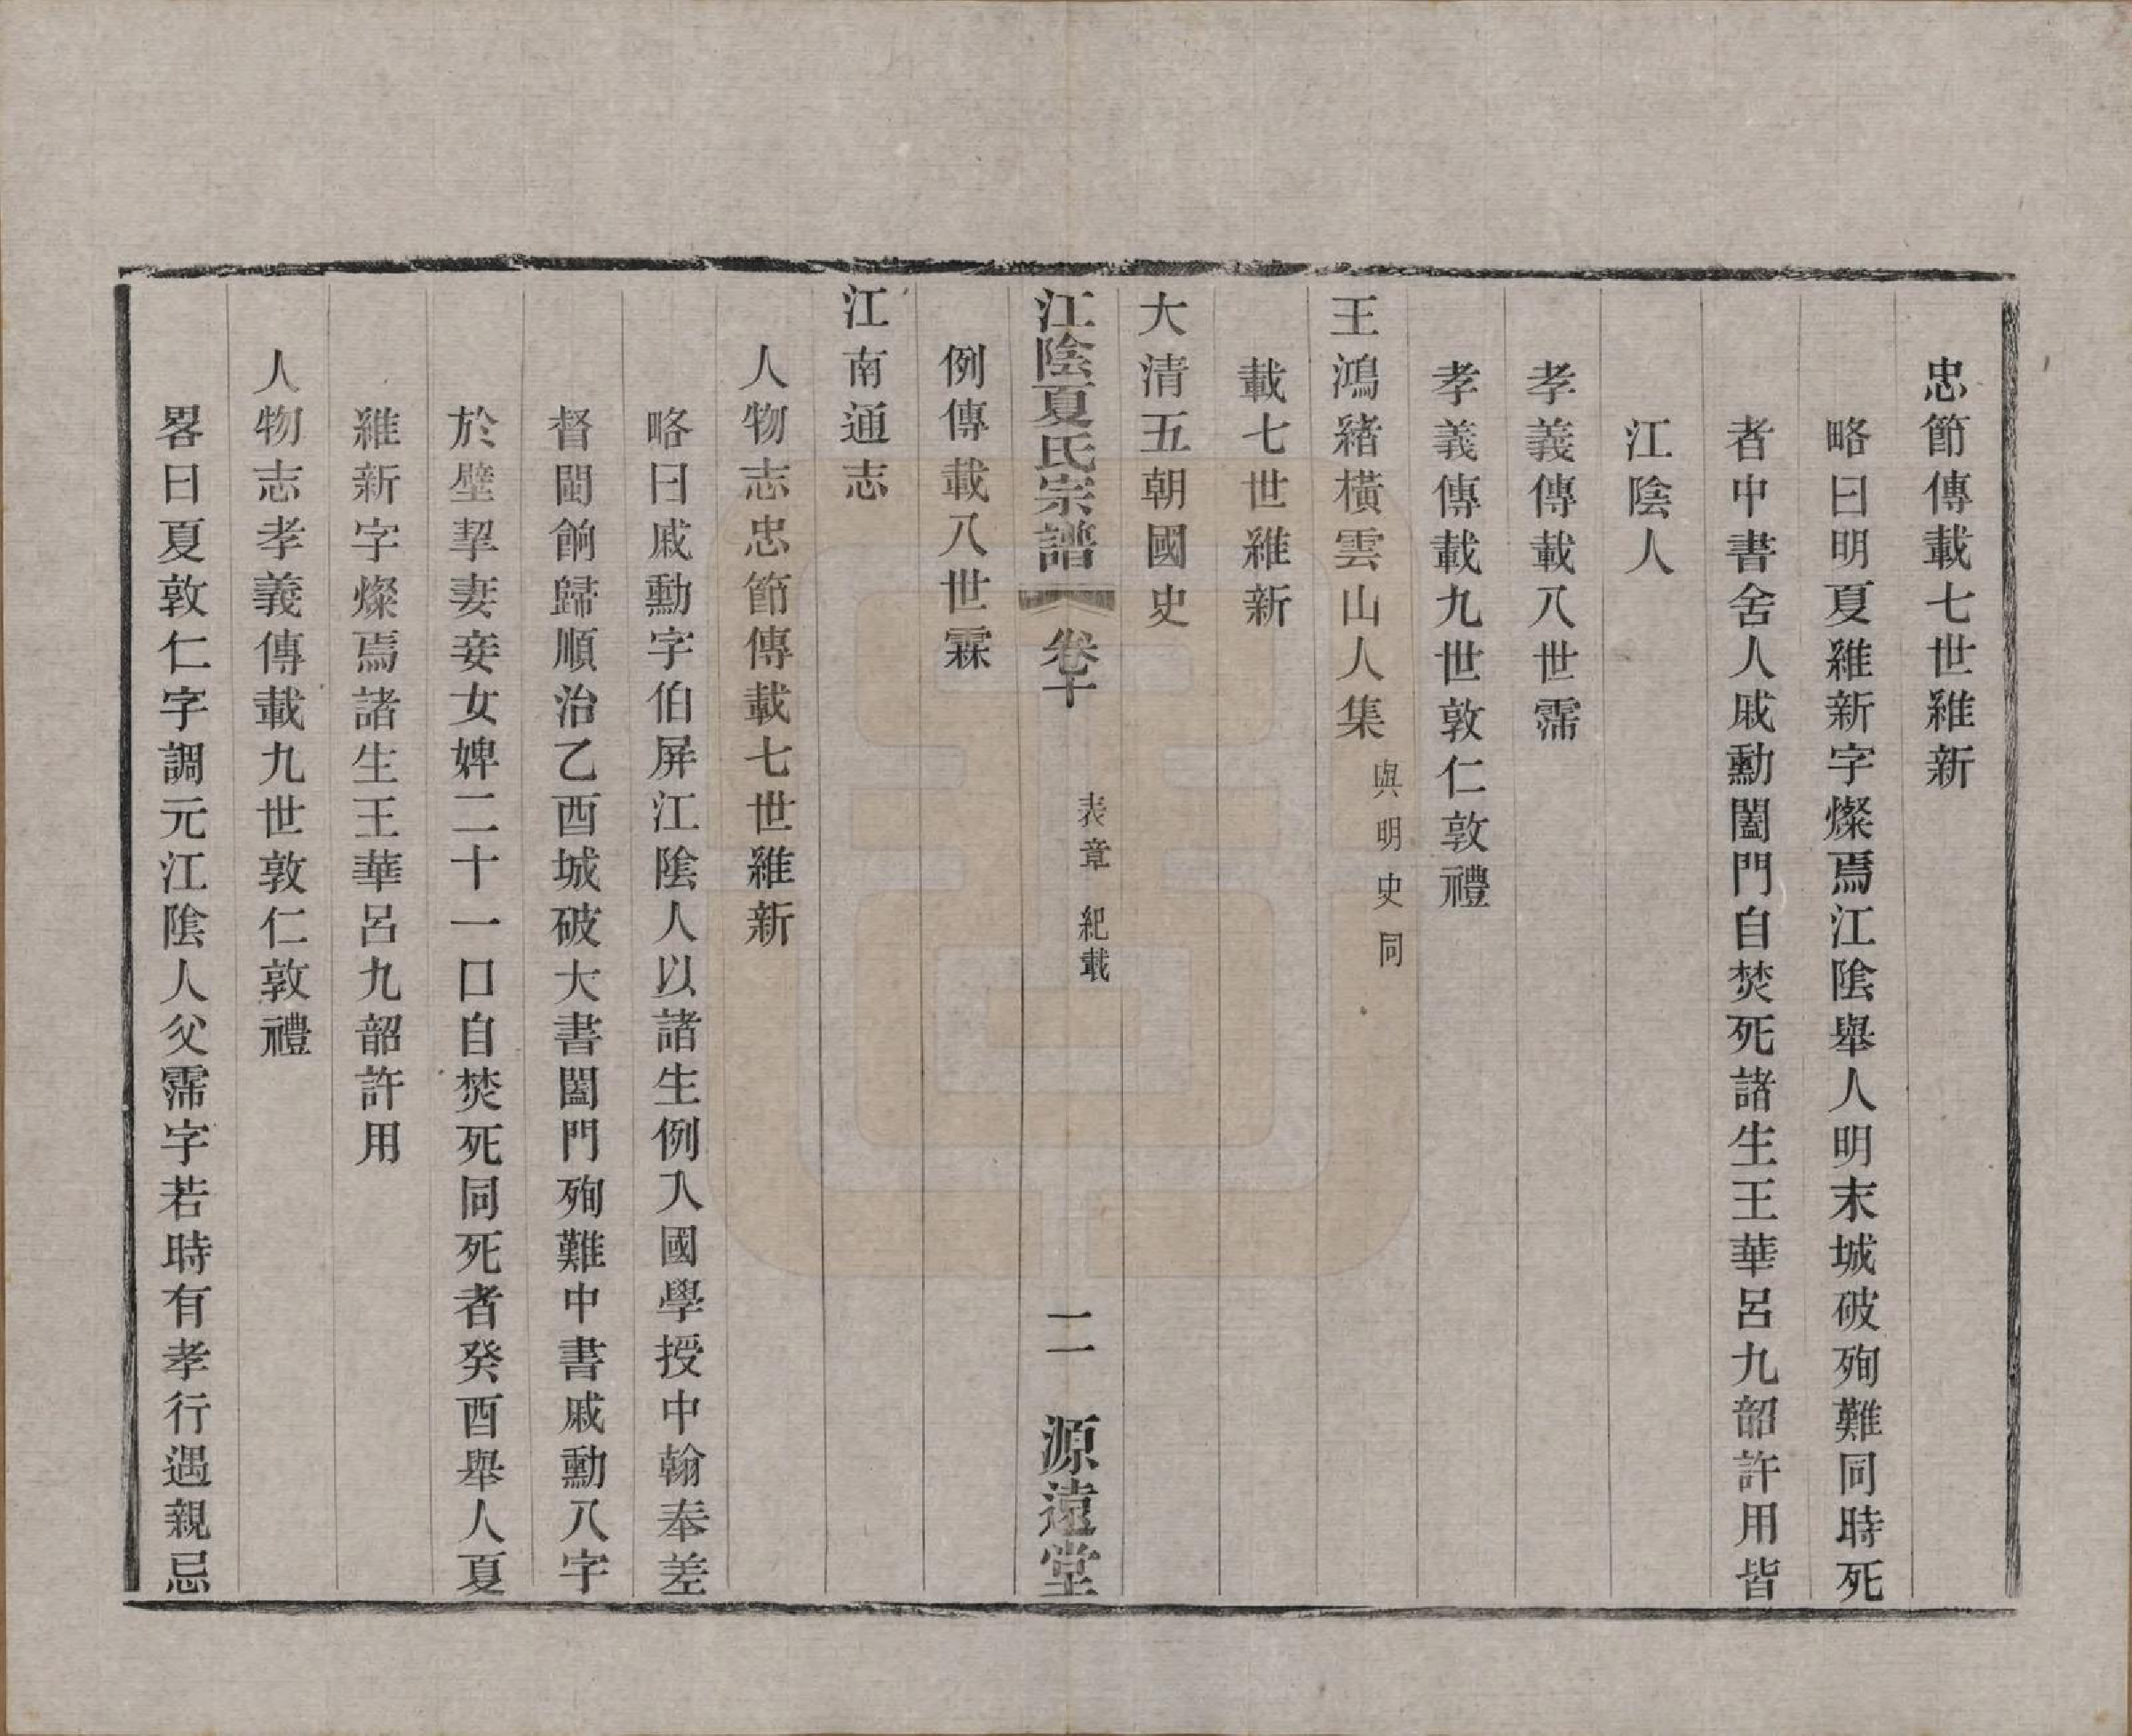 忠節傳載七世維新
略曰明夏維新字燦焉江陰舉人明末城破殉難同時死
者中書舍人戚勳闔門自焚死諸生王華呂九韶許用皆
江陰人
孝義傳載八世霈
孝義傳載九世敦仁敦禮
王鴻緒橫雲山人集 與明史同
載七世維新
大清五朝國史
江陰夏氏宗譜 卷十 表章 紀載 二 源遠堂
例傳載八世霖
江南通志
人物志忠節傳載七世維新
略曰戚勳字伯屏江陰人以諸生例入國學授中翰奉差
督閩餉歸順治乙酉城破大書闔門殉難中書戚勳八字
於壁挈妻妾女婢二十一口自焚死同死者癸酉舉人夏
維新字燦焉諸生王華呂九韶許用
人物志孝義傳載九世敦仁敦禮
畧曰夏敦仁字調元江陰人父霈字若時有孝行遇親忌